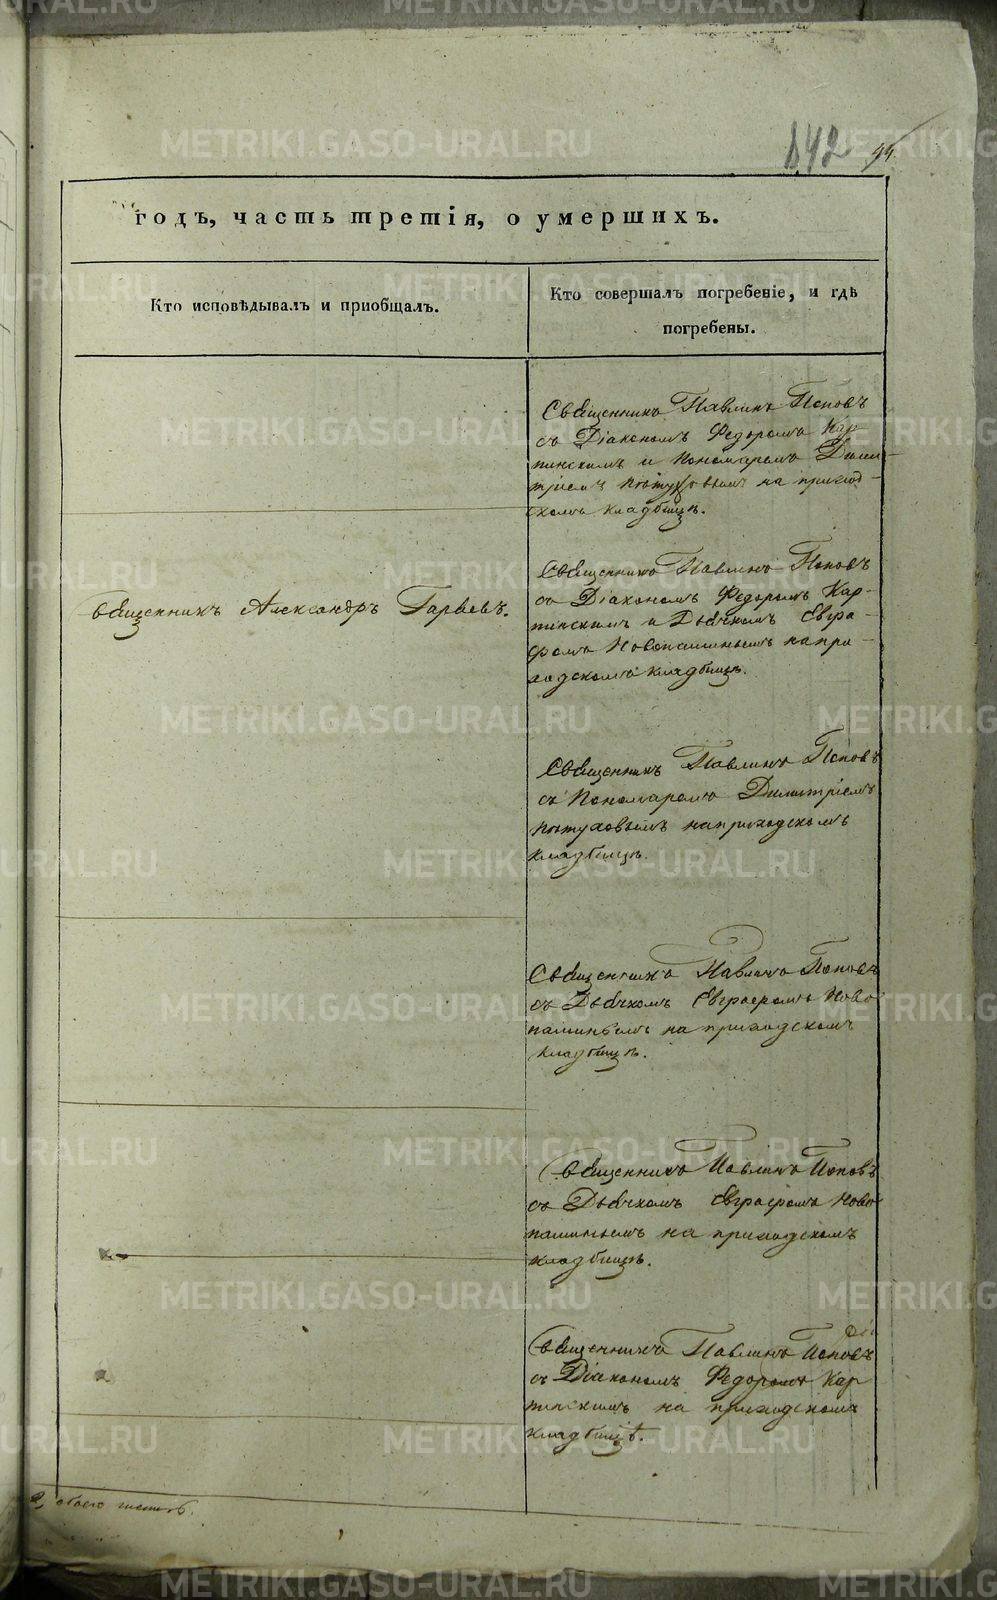 842 94
годъ, часть третія, о умершихъ.
Кто исповѣдывалъ и приобщалъ.
Кто совершалъ погребеніе, и гдѣ
погребены.
Священникъ Павлинъ Поповъ
съ Діакономъ Федоромъ Кар-
пинскимъ и Пономаремъ Дими-
тріемъ Пѣтуховымъ на приход-
скомъ кладбищѣ.
Священникъ Александръ Гаряевъ.
Священникъ Павлинъ Поповъ
съ Діакономъ Федоромъ Кар-
пинскимъ и Дьячкомъ Евгра-
фомъ Новопашинымъ на при-
ходскомъ кладбищѣ.
Священникъ Павлинъ Поповъ
съ Пономаремъ Димитріемъ
Пѣтуховымъ на приходскомъ
кладбищѣ.
Священникъ Павлинъ Поповъ
съ Дьячкомъ Евграфомъ Ново
пашинымъ на приходскомъ
кладбищѣ.
Священникъ Павлинъ Поповъ
съ Дьячкомъ Евграфомъ Ново
пашинымъ на приходскомъ
кладбищѣ.
Священникъ Павлинъ Поповъ
съ Діакономъ Федоромъ Кар
пинскимъ на приходскомъ
кладбищѣ.
обоего
METRIKI.GASO-URAL.RU